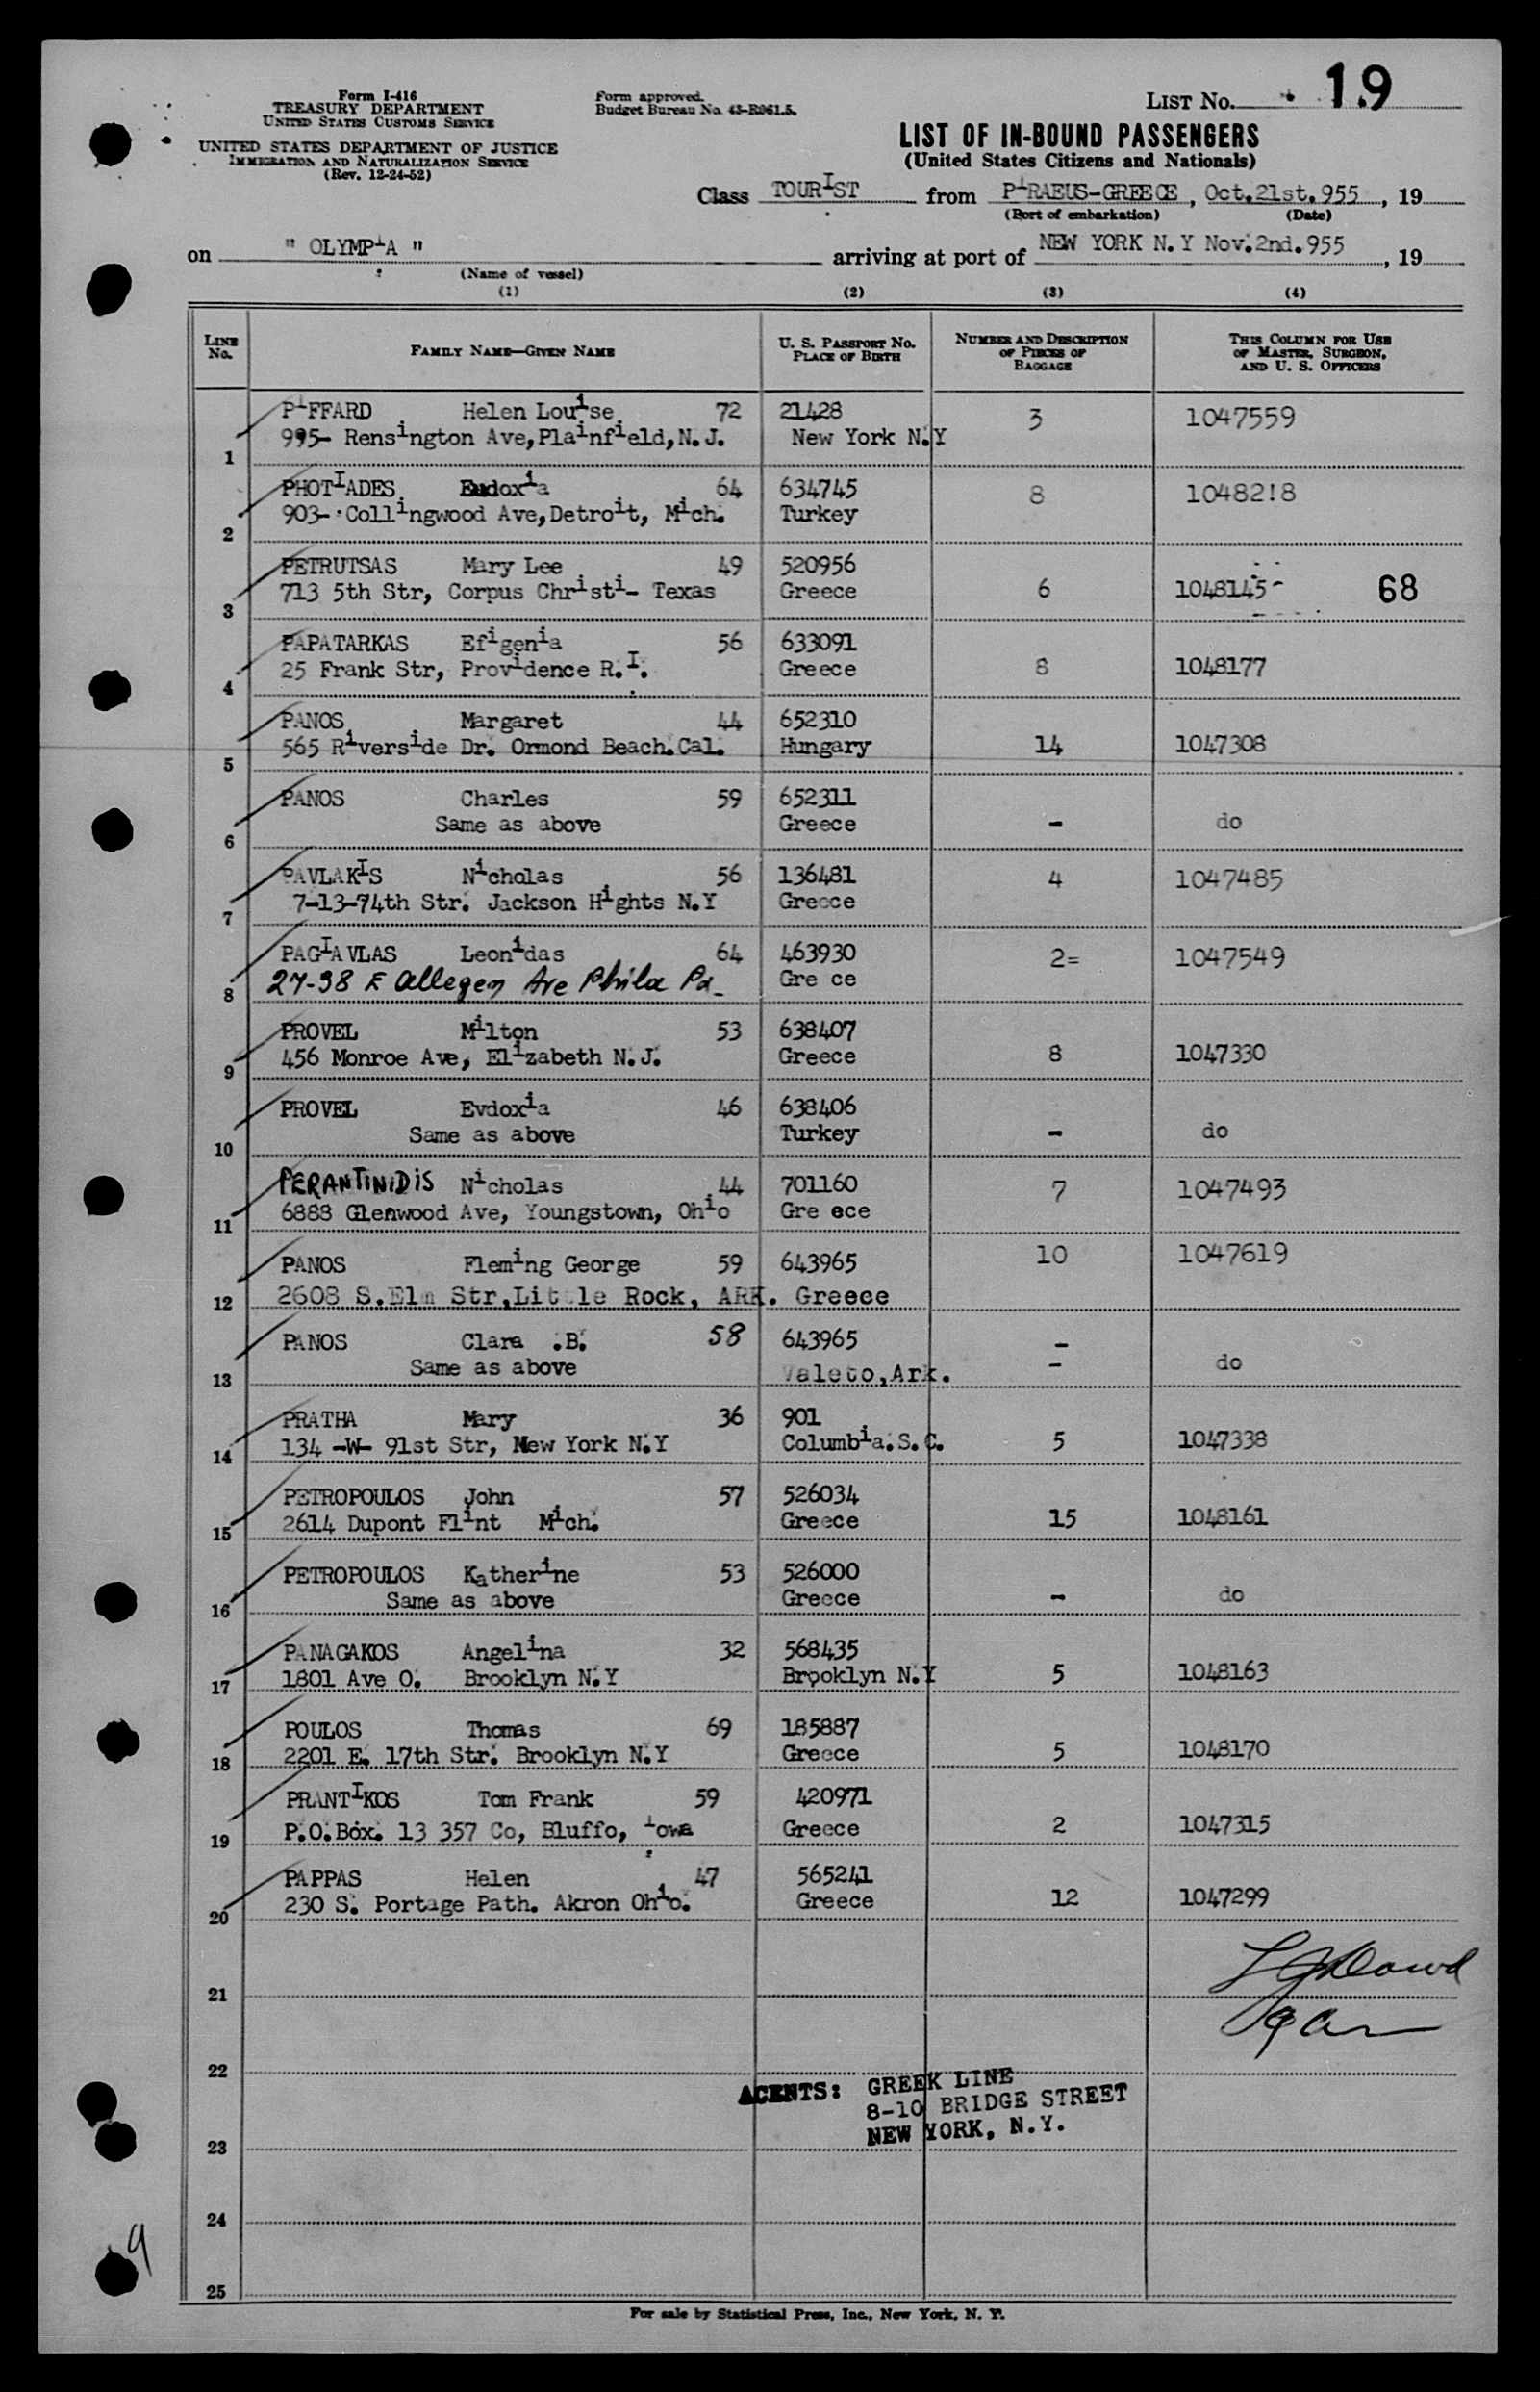 Form I-416
TREASURY DEPARTMENT
UNITED STATES CUSTOMS SERVICE
UNITED STATES DEPARTMENT OF JUSTICE
IMMIGRATION AND NATURALIZATION SERVICE
(Rev. 12-24-52)
Form approved.
Budget Bureau No. 43-R061.5.
LIST No. 19
LIST OF IN-BOUND PASSENGERS
(United States Citizens and Nationals)
Class TOURIST from PIRAEUS-GREECE, Oct.21st.955, 19
(Port of embarkation) (Date)
on " OLYMPIA " arriving at port of NEW YORK N.Y Nov.2nd.955, 19
(Name of vessel)
(1) (2) (3) (4)
LINE No. FAMILY NAME—GIVEN NAME U. S. PASSPORT No. PLACE OF BIRTH NUMBER AND DESCRIPTION OF PIECES OF BAGGAGE THIS COLUMN FOR USE OF MASTER, SURGEON, AND U. S. OFFICERS
PiFFARD Helen Louise 72 21428 3 1047559
1 995- Rensington Ave,Plainfield,N.J. New York N.Y
PHOTIADES Eudoxia 64 634745 8 1048218
2 903- Collingwood Ave,Detroit, Mich. Turkey
PETRUTSAS Mary Lee 49 520956
3 713 5th Str, Corpus Christi- Texas Greece 6 1048145- 68
PAPATARKAS Efigenia 56 633091
4 25 Frank Str, Providence R.I. Greece 8 1048177
PANOS Margaret 44 652310
5 565 Riverside Dr. Ormond Beach.Cal. Hungary 14 1047308
PANOS Charles 59 652311
6 Same as above Greece - do
PAVLAKIS Nicholas 56 136481 4 1047485
7 7-13-74th Str. Jackson Hights N.Y Greece
PAGIAVLAS Leonidas 64 463930 2= 1047549
8 27-38 E Allegen Ave Phila Pa_ Gre ce
PROVEL Milton 53 638407
9 456 Monroe Ave, Elizabeth N.J. Greece 8 1047330
PROVEL Evdoxia 46 638406
10 Same as above Turkey - do
PERANTINIDIS Nicholas 44 701160 7 1047493
11 6888 Glenwood Ave, Youngstown, Ohio Gre ece
PANOS Fleming George 59 643965 10 1047619
12 2608 S.Elm Str,Little Rock, ARK. Greece
PANOS Clara .B. 58 643965 -
13 Same as above Valeto,Ark. - do
PRATHA Mary 36 901
14 134 -W- 91st Str, New York N.Y Columbia.S.C. 5 1047338
PETROPOULOS John 57 526034
15 2614 Dupont Flint Mich. Greece 15 1048161
PETROPOULOS Katherine 53 526000
16 Same as above Greece - do
PANAGAKOS Angelina 32 568435
17 1801 Ave O. Brooklyn N.Y Brooklyn N.Y 5 1048163
POULOS Thomas 69 185887
18 2201 E. 17th Str. Brooklyn N.Y Greece 5 1048170
PRANTIKOS Tom Frank 59 420971
19 P.O.Box. 13 357 Co, Bluffo, iowa Greece 2 1047315
PAPPAS Helen 47 565241
20 230 S. Portage Path. Akron Ohio. Greece 12 1047299
21
22
AGENTS: GREEK LINE
8-10 BRIDGE STREET
NEW YORK, N.Y.
23
24
9
25
For sale by Statistical Press, Inc., New York, N. Y.